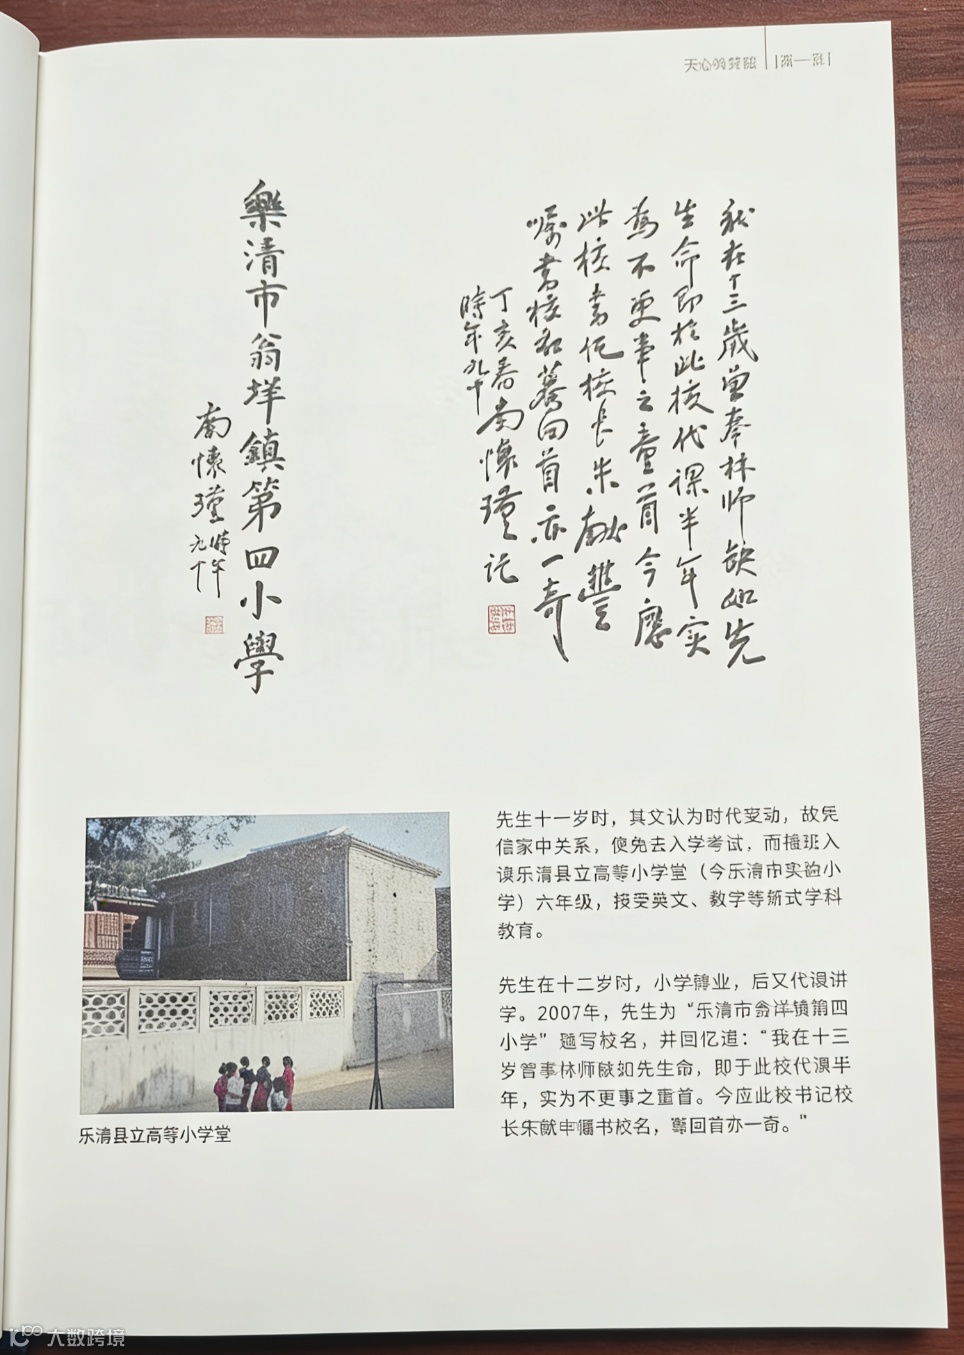 天心
我在十三歲曾奉林師缺如先
生命即於此校代課半年实
為不更事之童首今應
此校書 校長朱獻豐
囑書校名驀回首亦一奇
丁亥春南懷瑾记
時年九十
樂清市翁垟鎮第四小學
南懷瑾時年
九十
先生十一岁时，其父认为时代变动，故凭
信家中关系，免去入学考试，而插班入
读乐清县立高等小学堂（今乐清市实验小
学）六年级，接受英文、数学等新式学科
教育。
先生在十二岁时，小学毕业，后又代课讲
学。2007年，先生为“乐清市 洋镇第四
小学”题写校名，并回忆道：“我在十三
岁曾 林师缺如先生命，即于此校代课半
年，实为不更事之童首。今应此校书记校
长朱 书校名，回首亦一奇。”
乐清县立高等小学堂
大数跨境